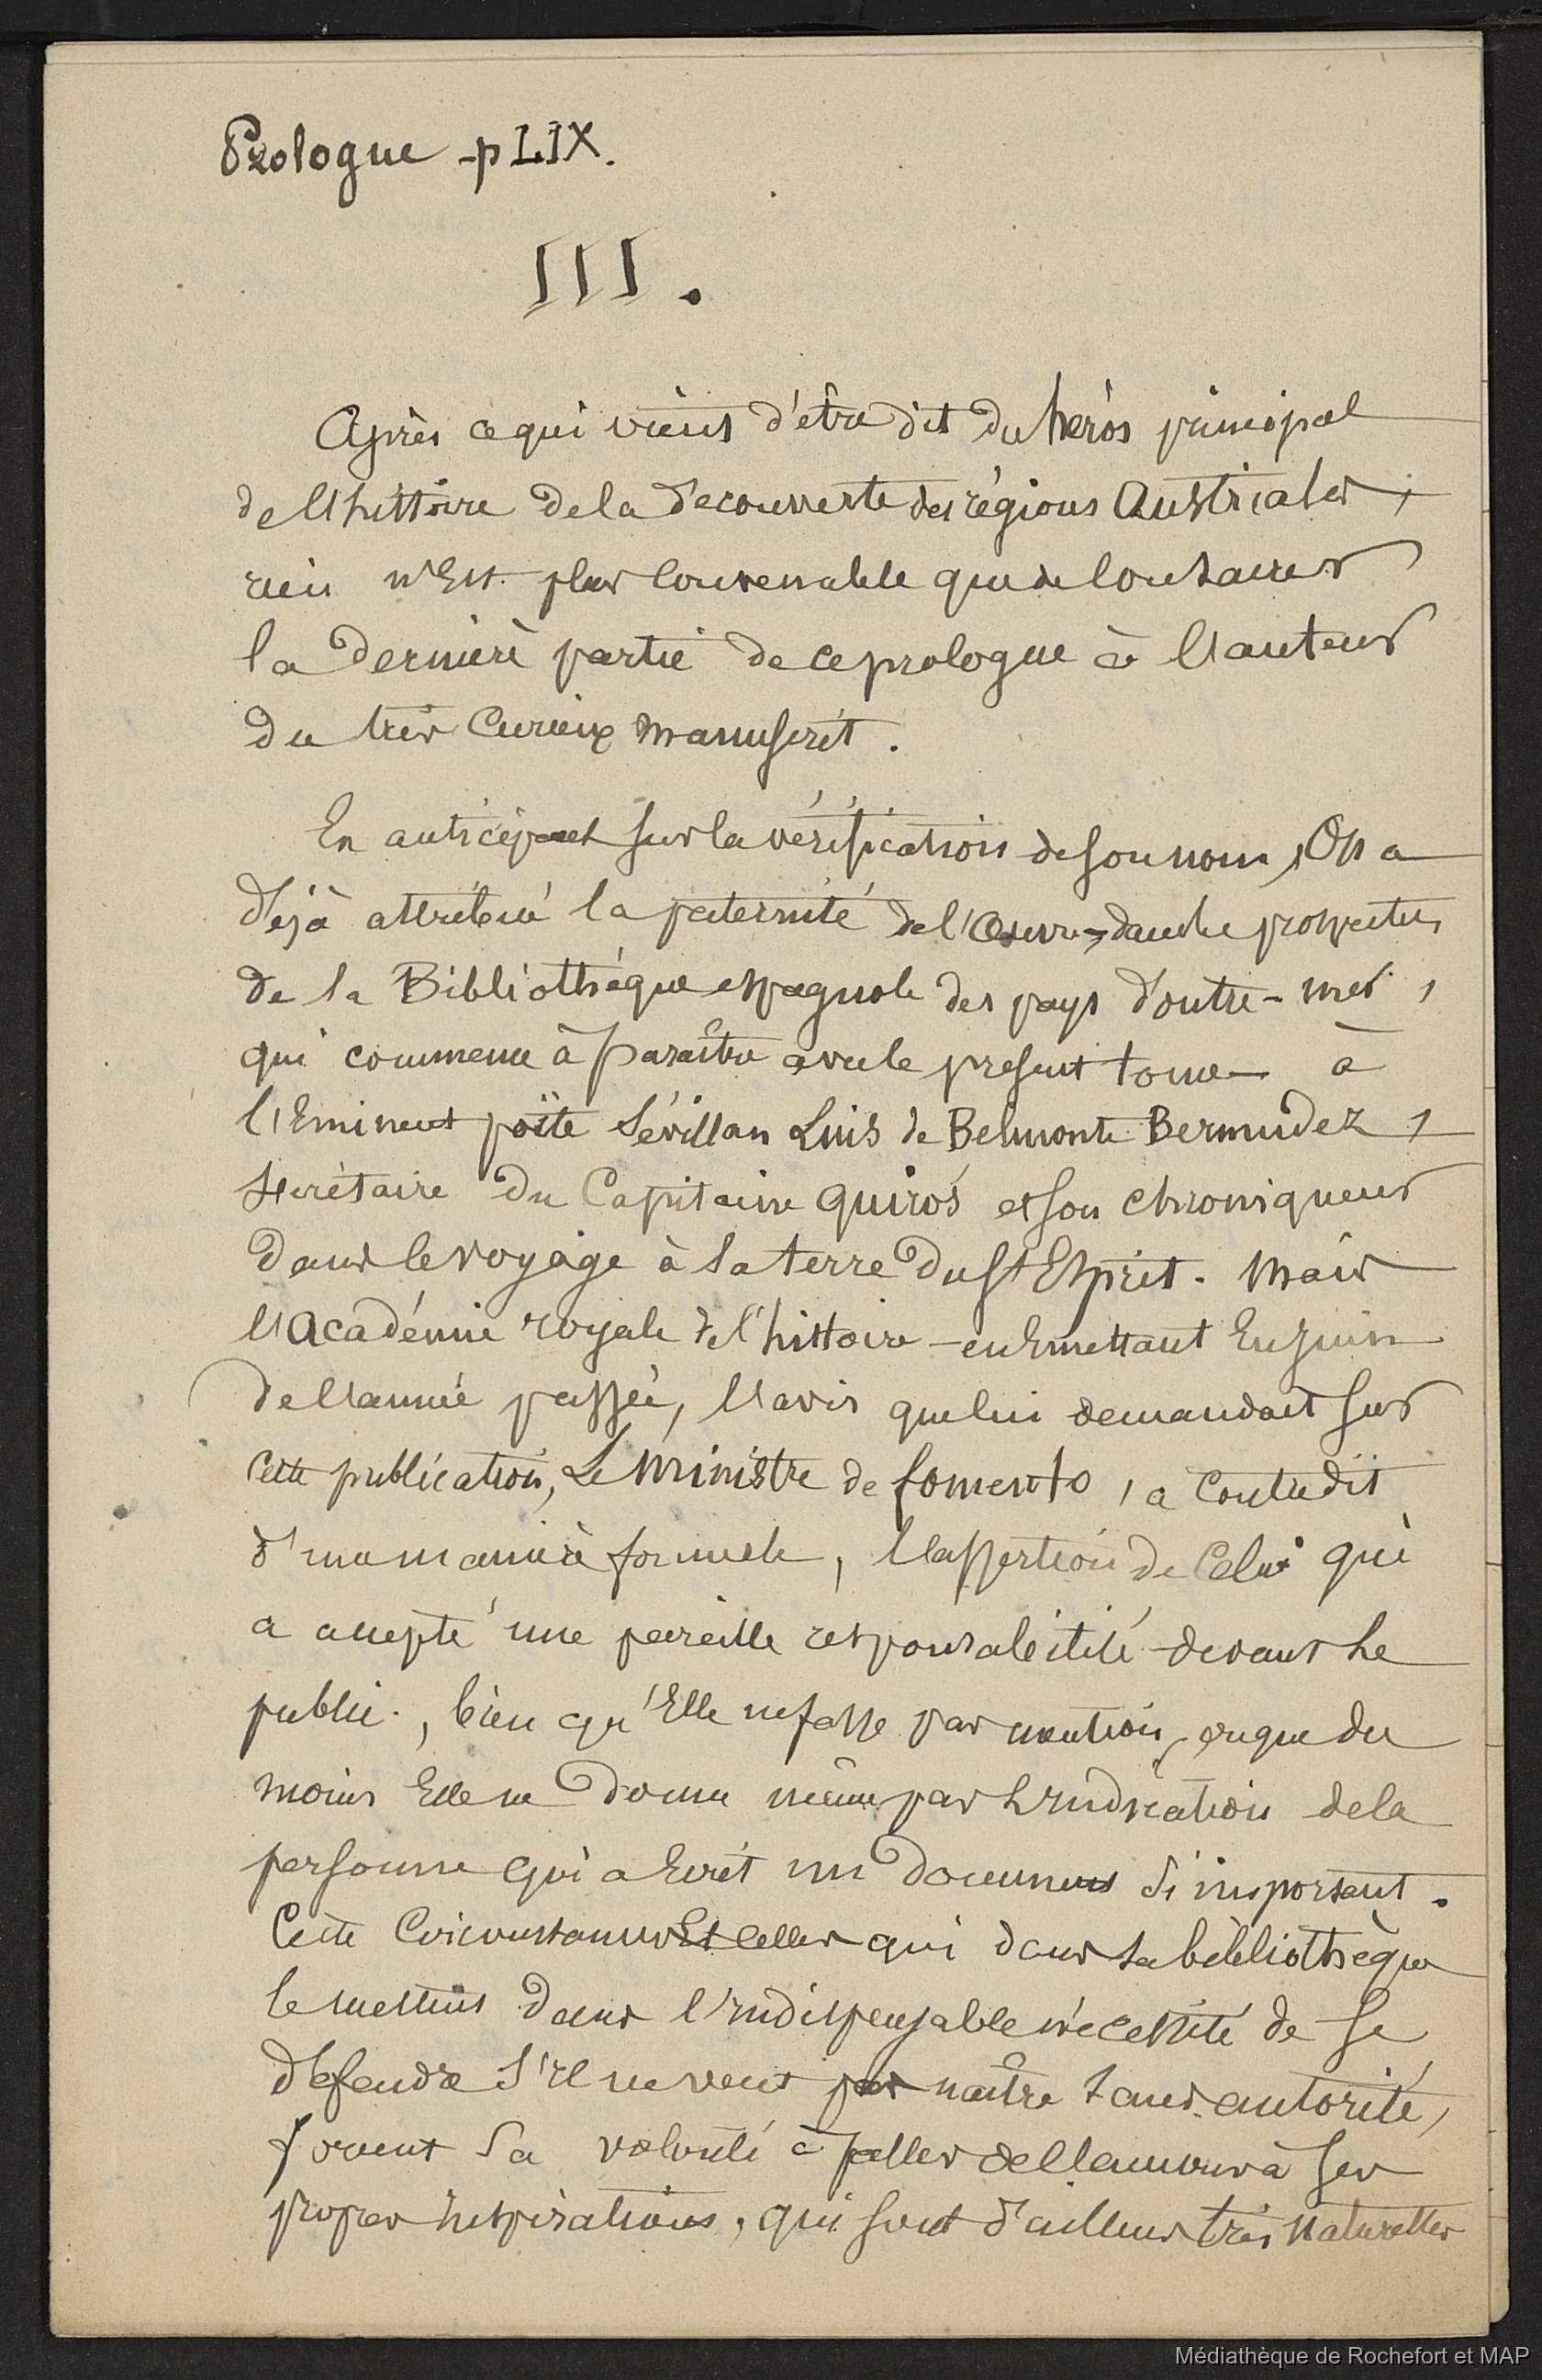 Prologue - p LIX.
III.
Après ce qui vient d'être dit du heros principal
de l'histoire de la découverte des régions Australes,
rien n'Est plus Convenable que de Consacrer
la derniere partie de ce prologue à l'auteur
du très Curieux manuscrit.
En anticipant sur la vérification de son nom, On a
déjà attribué la paternité de l'Oeuvre, dans le prospectus
de la Bibliothèque espagnole des pays d'outre-mer,
qui commence à paraître avec le présent tome - à
l'Eminent poëte Sévillan Luis de Belmonte Bermudez,
secrétaire du Capitaine Quirós et son chroniqueur
dans le voyage à la terre du St Esprit. Mais
l'Académie royale de l'histoire - en Emettant En juin
de l'année passée, l'avis que lui demandait sur
cette publication, Le Ministre de fomento, a Contredit
d'une manière formelle, l'assertion de Celui qui
a accepté une pareille responsabilité devant le
public, bien qu'Elle ne fasse pas mention, ou que du
moins Elle ne donne même pas l'Indication de la
personne qui a Ecrit un document si important.
Cette Circonstance Et Celles qui dans la bibliothèque
le mettent dans l'indispensable nécessité de se
défendre s'il ne veut pas naître sans autorité,
forcent sa volonté à de l'amour à ses
propres inspirations, qui sont d'ailleurs très Naturelles
Médiathèque de Rochefort et MAP